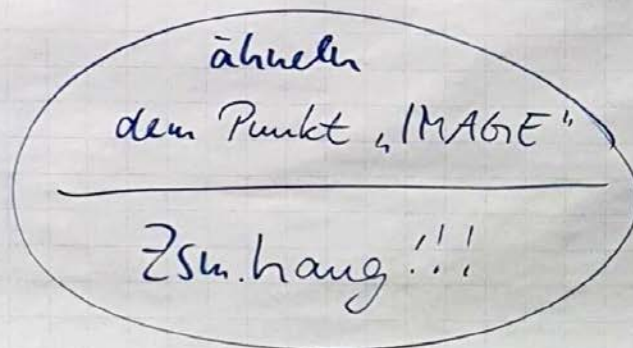 ähneln
dem Punkt „IMAGE“
Zsm.hang!!!